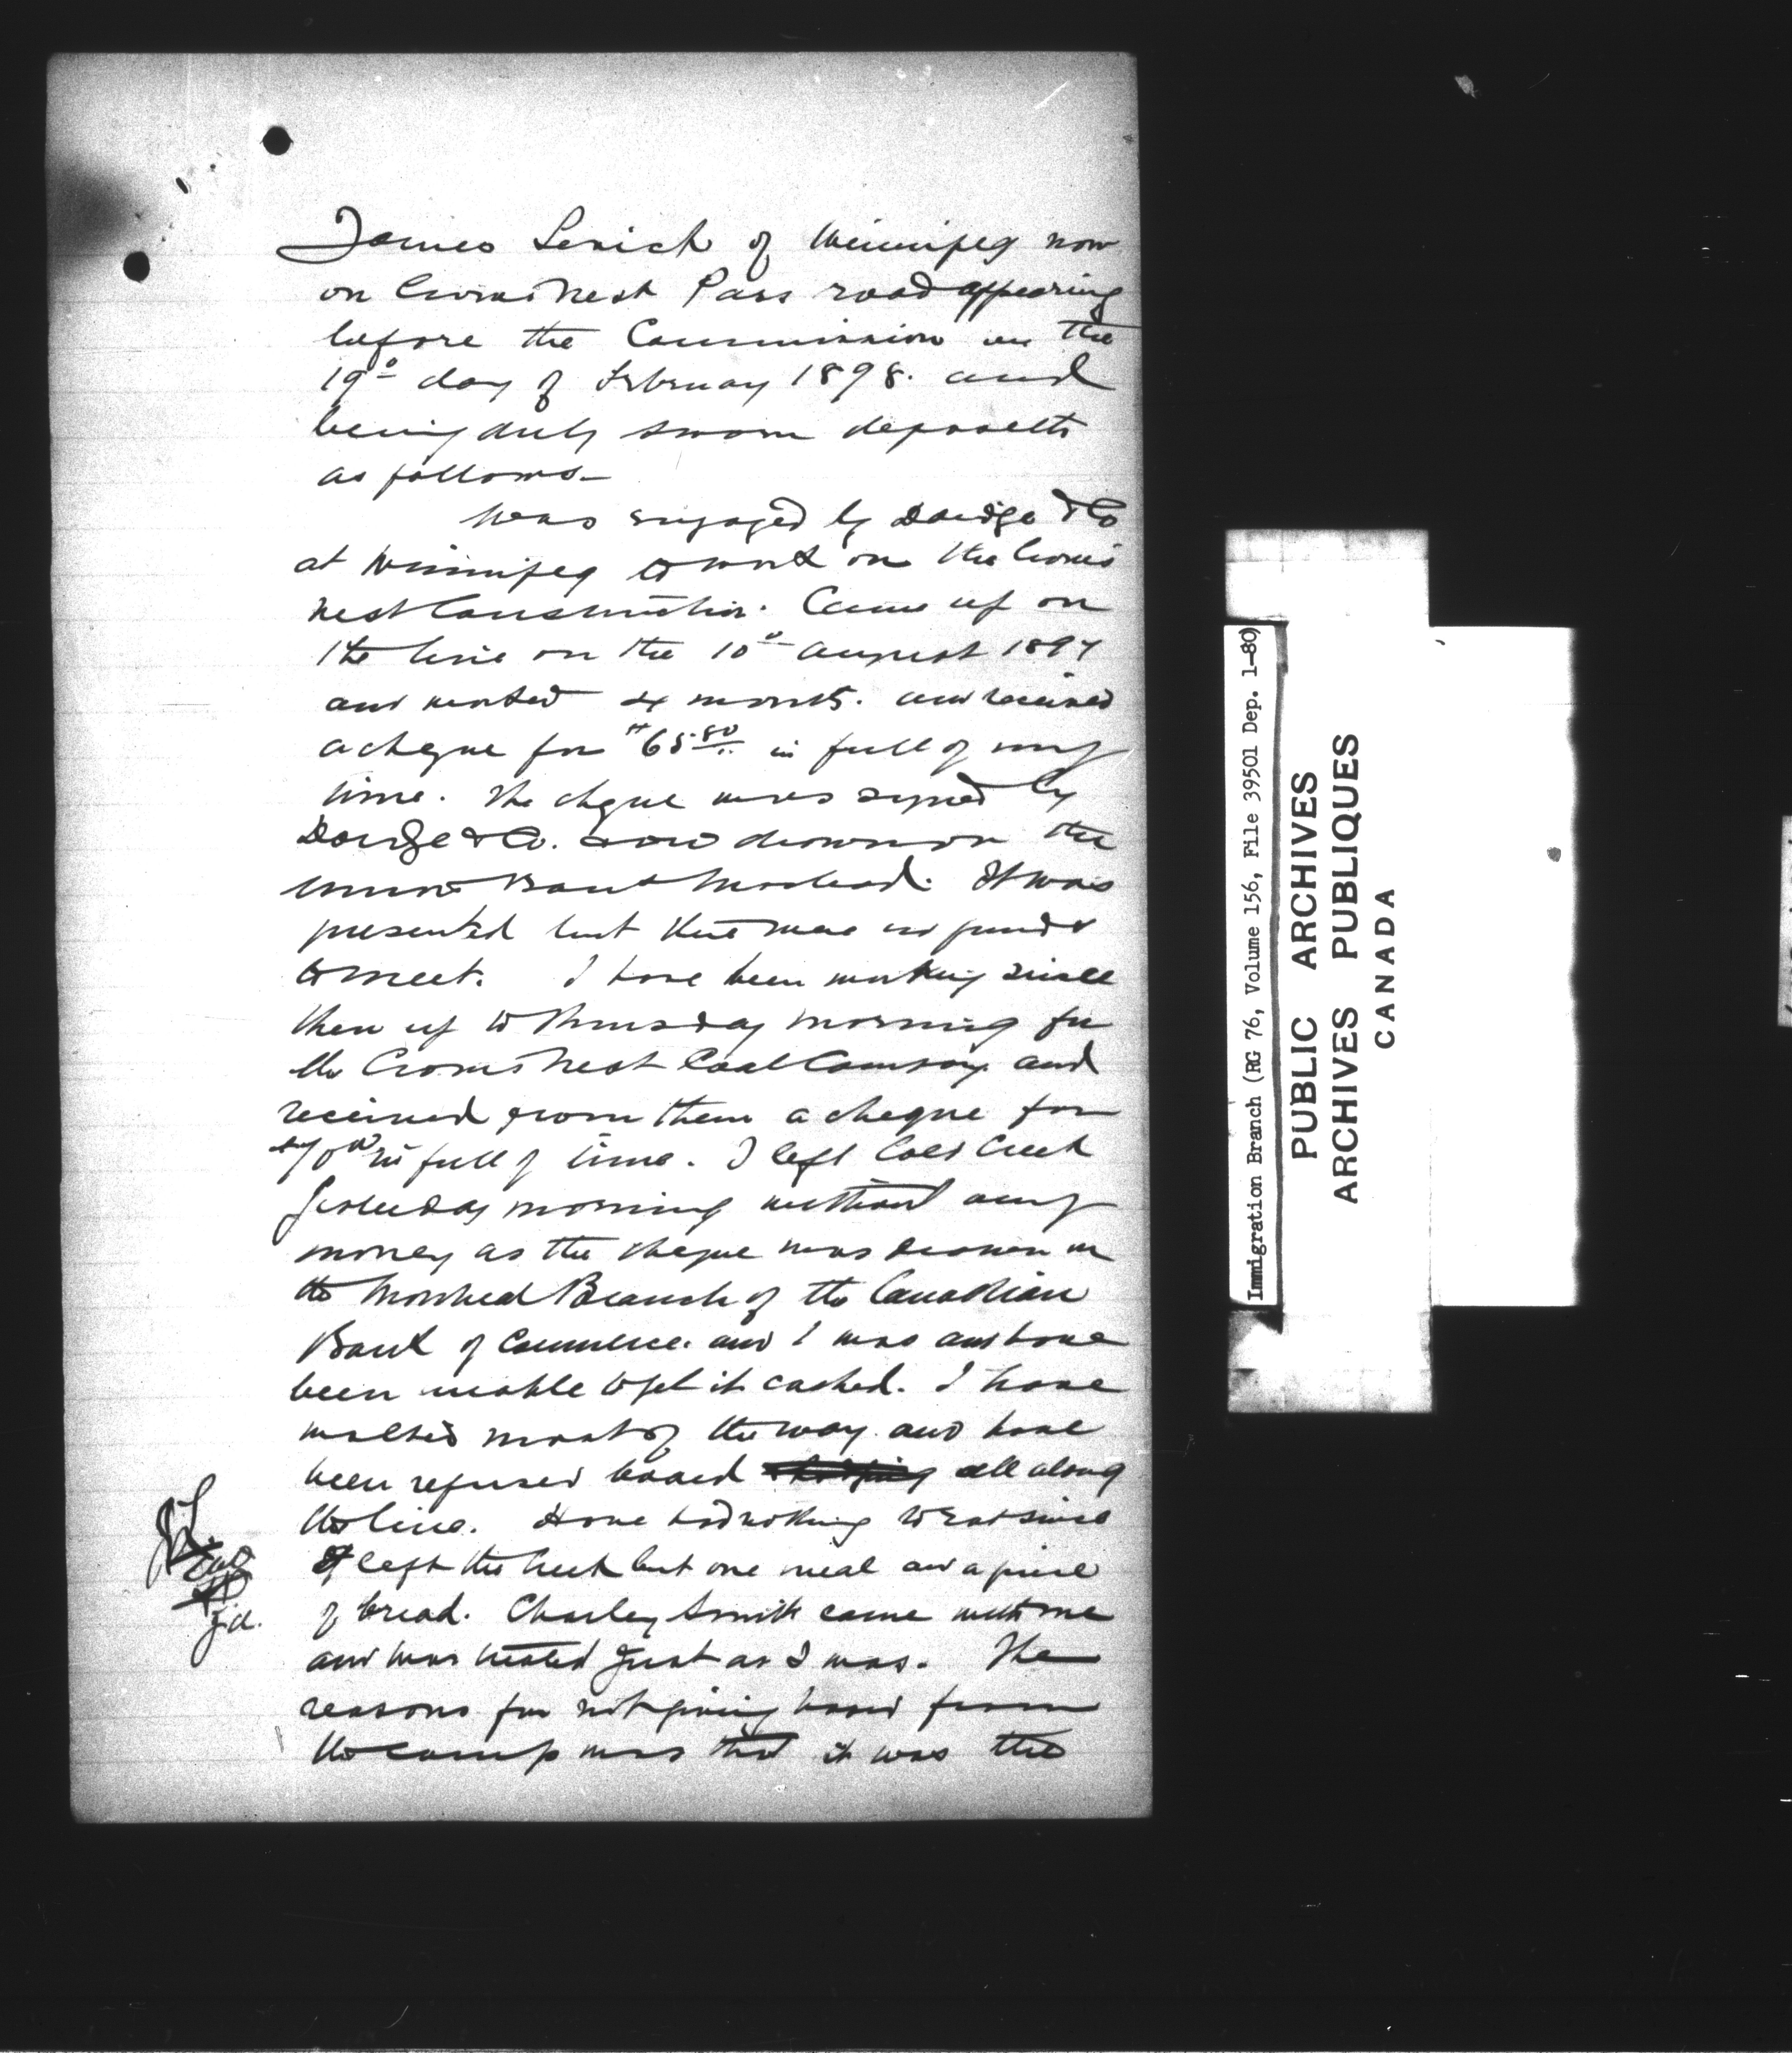 James           of Winnipeg now
on Crows Nest Pass road appearing
before the Commission on the
19º day of February 1898. and
being duly sworn deposeth
as follows—
Was engaged by         & Co
at Winnipeg to work on the Crows
Nest Construction. Came up on
the line on the 10º August 1897
and worked 4 months. and received
a cheque for $65.80 in full of my
time. The cheque was signed by
        & Co. and drawn on the
Union Bank Macleod. It was
presented but there was no funds
to meet. I have been working since
then up to Thursday morning for
the Crows Nest Coal Company and
received from them a cheque for
in full of time. I left Coal Creek
yesterday morning without any
money as the cheque was drawn on
the         Branch of the Canadian
Bank of Commerce. and I was and have
been unable to get it cashed. I have
walked most of the way and have
been refused board all along
the line. Have had nothing to eat since
I left the Creek but one meal and a piece
of bread. Charley Smith came with me
and was treated just as I was. The
reasons for not giving board from
the camp was that it was the
J.L.
J.A.
Immigration Branch (RG 76, Volume 156, File 39501 Dep. 1-80)
PUBLIC ARCHIVES
ARCHIVES PUBLIQUES
CANADA